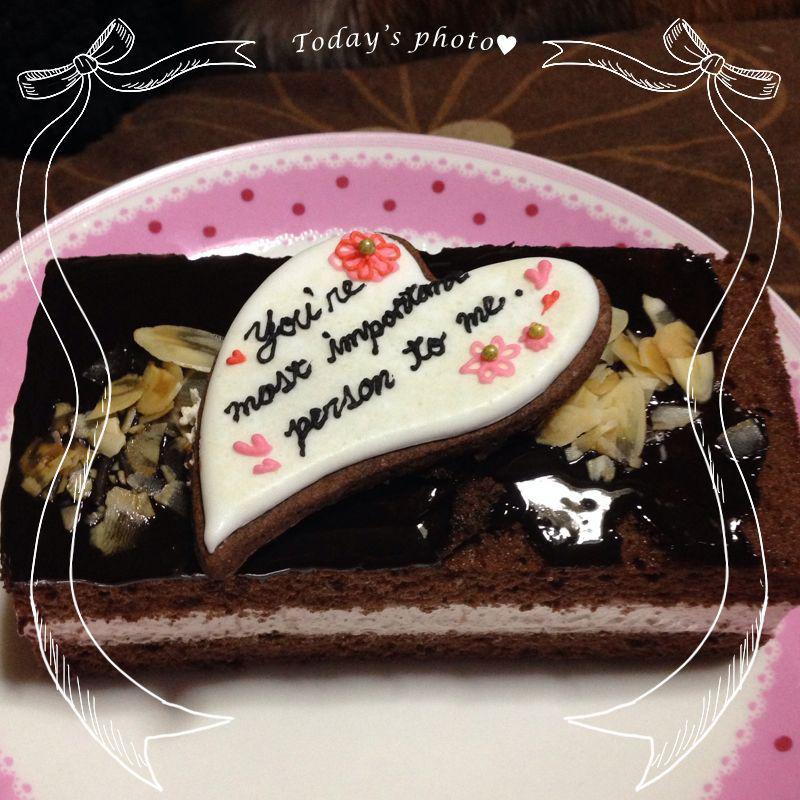 Today's photo♥
You're
most important
person to me.